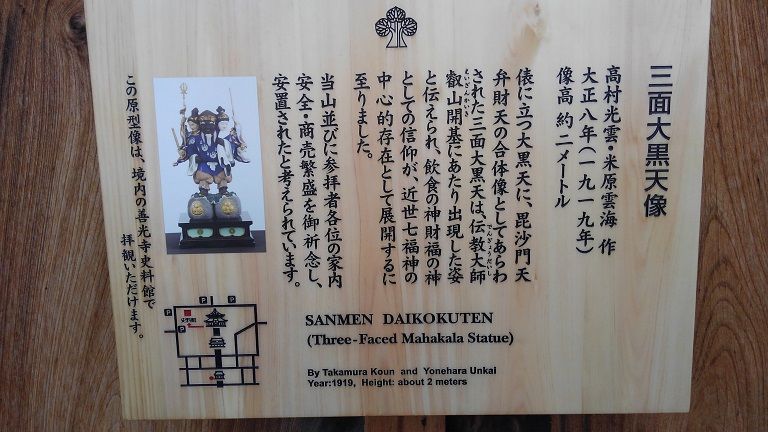 三面大黒天像
高村光雲・米原雲海 作
大正八年(一九一九年)
像高 約 二メートル
俵に立つ大黒天に、毘沙門天
弁財天の合体像としてあらわ
された三面大黒天は、伝教大師
叡山開基にあたり出現した姿
と伝えられ、飲食の神財福の神
としての信仰が、近世七福神の
中心的存在として展開するに
至りました。
当山並びに参拝者各位の家内
安全・商売繁盛を御祈念し、
安置されたと考えられています。
この原型像は、境内の善光寺史料館で
拝観いただけます。
P
P
P
P
SANMEN DAIKOKUTEN
(Three-Faced Mahakala Statue)
By Takamura Koun and Yonehara Unkai
Year:1919, Height: about 2 meters